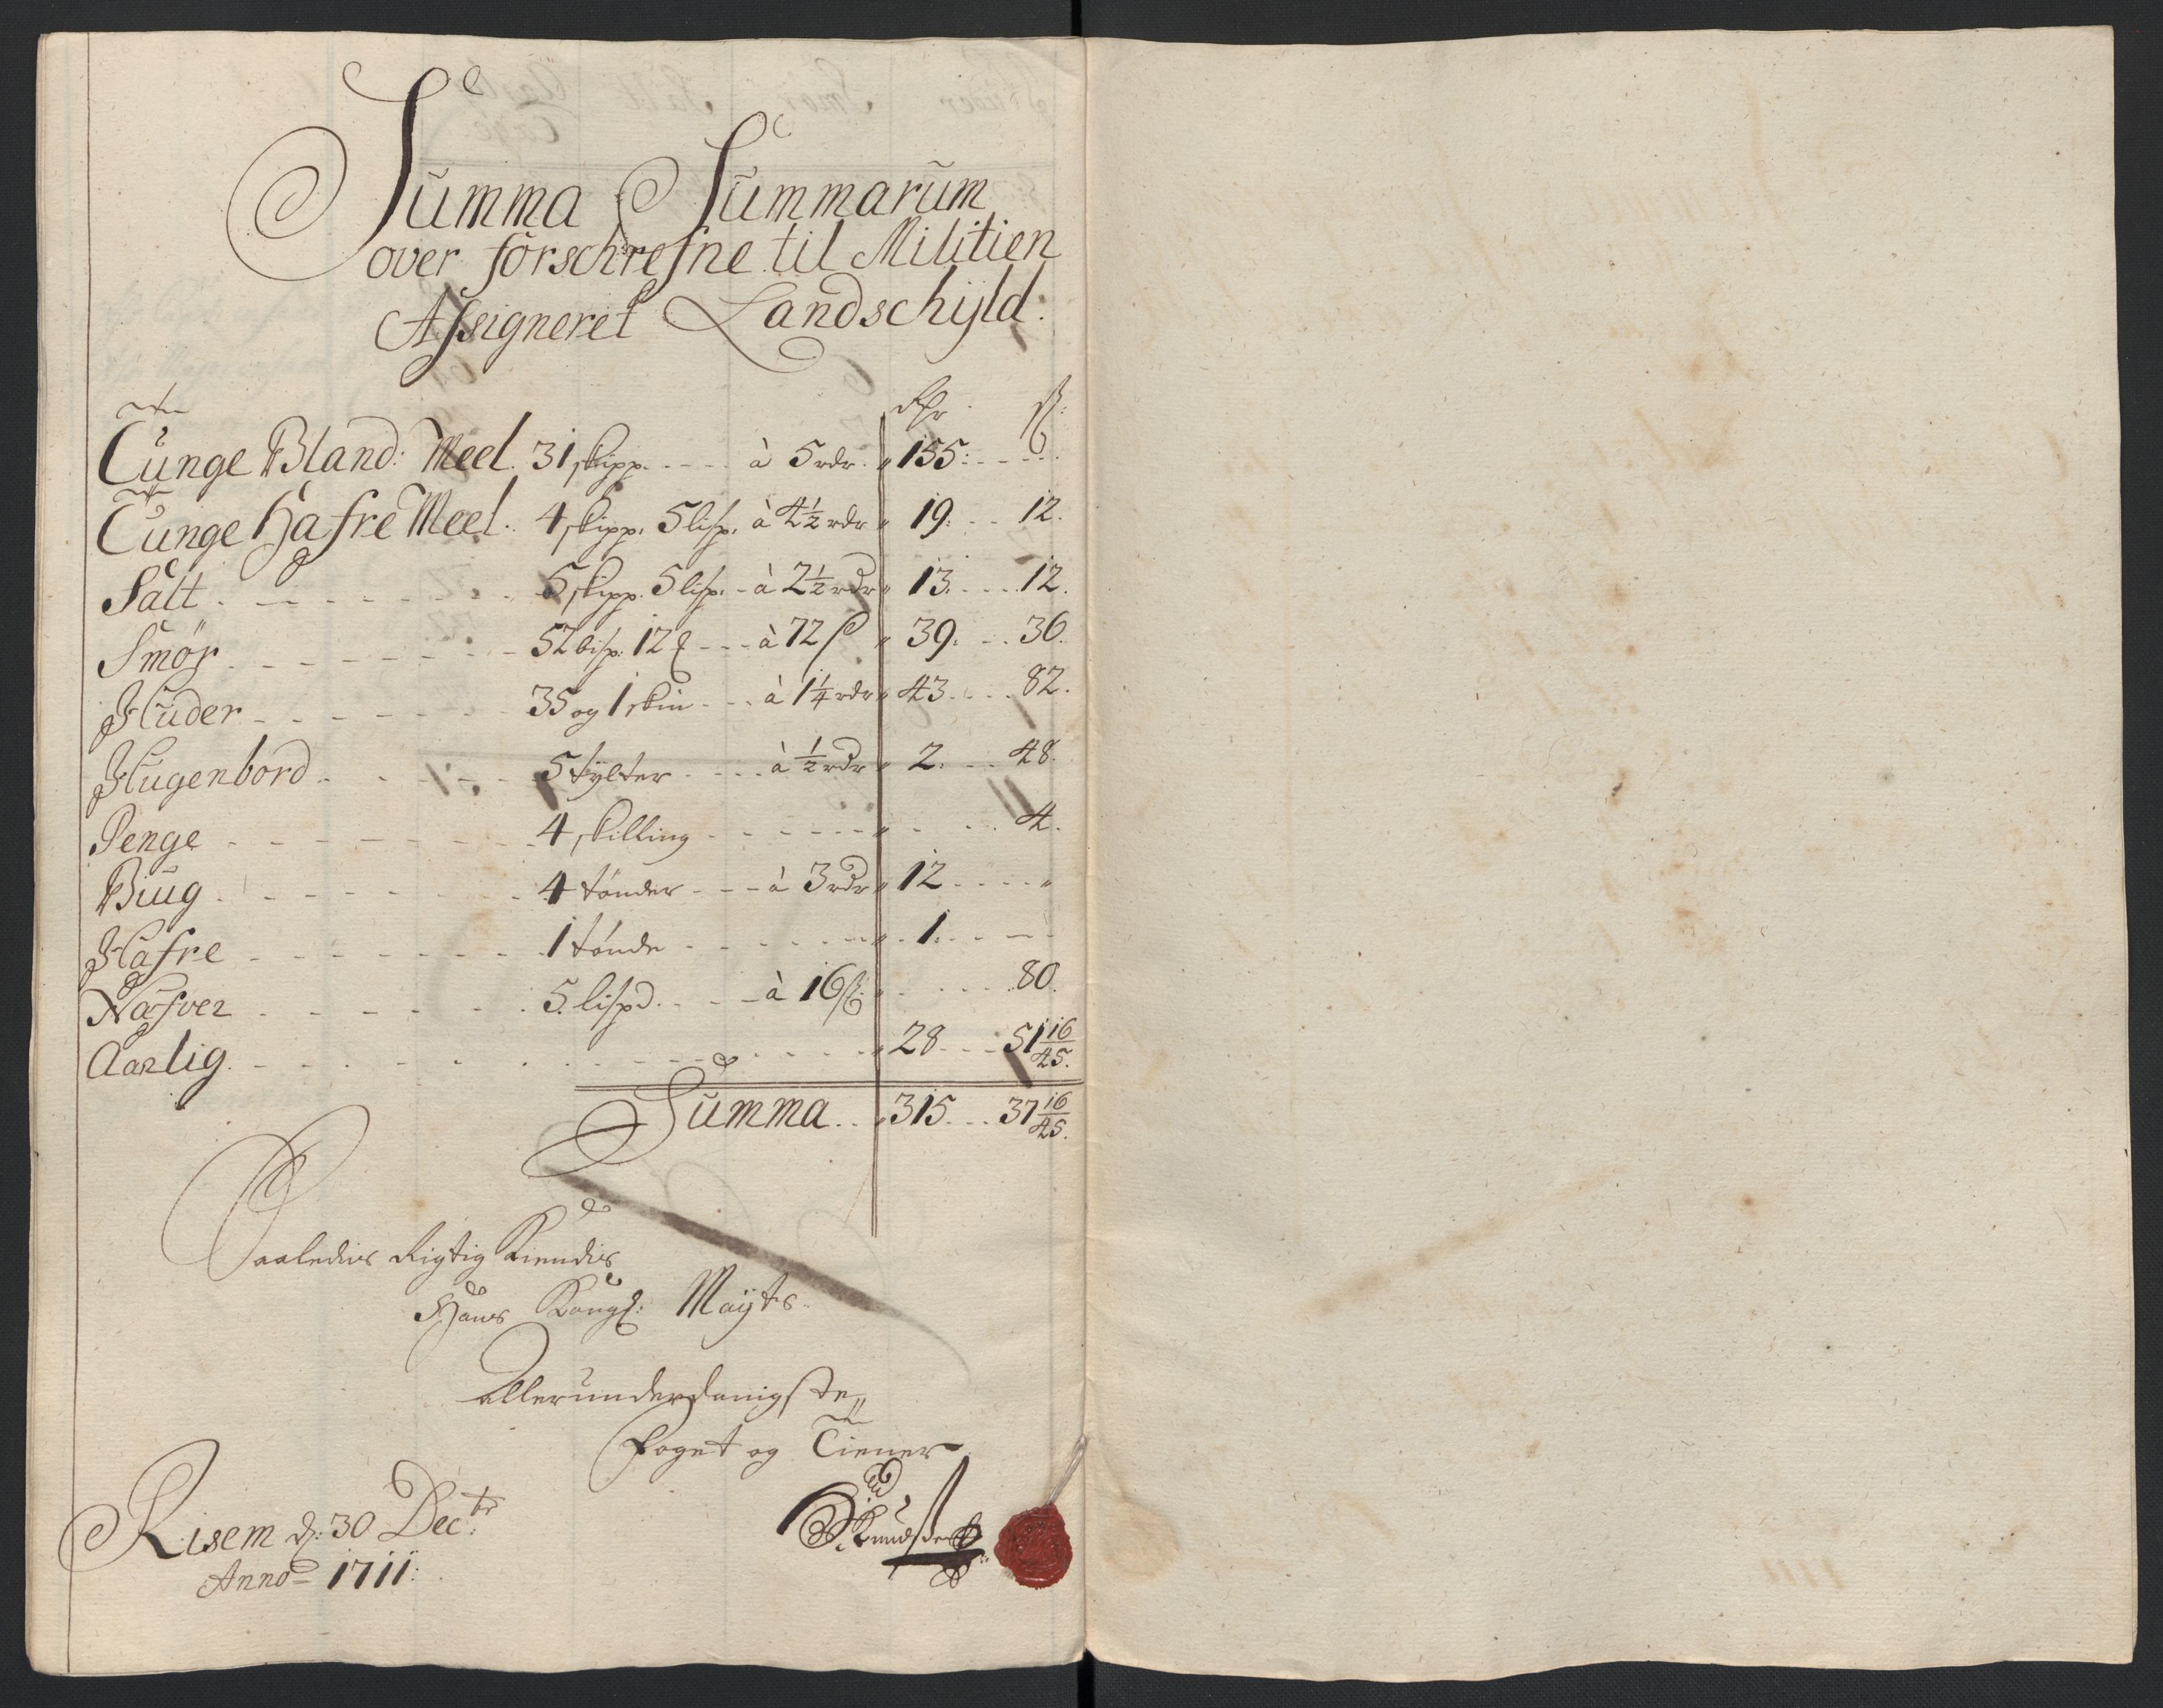 Summa Summarum
over forschrefne til Militien
Assigneret Landschyld:
Rdr ß:
Tunge Bland: Meel. 31 skipp. à 5 rdr. 155:
Tunge Hafre Meel. 4 skipp. 5 lisp. à 4½ rdr 19. 12.
Salt 5 skipp. 5 lisp. à 2½ rdr 13. 12.
Smör 52 bisp. 12 à 72 ß 39. 36.
Huder 35 og 1 skin à 1¼ rdr 43. 82.
Hugenbord 5 tylter à ½ rdr 2. 48.
Penge 4 skilling 4.
Biug 4 tönder à 3 rdr 12
Hafre 1 tönde 1.
Næfver 5 lispd. à 16 ß: 80.
Aarlig. 28 51 16/45.
Summa 315 37 16/45.
Saaledis Rigtig Kiendis
Hans Kongl: Mayts.
allerunderdanigste
Foget og Tiener
Knudsen
Risem d: 30 Decbr:
Anno 1711: